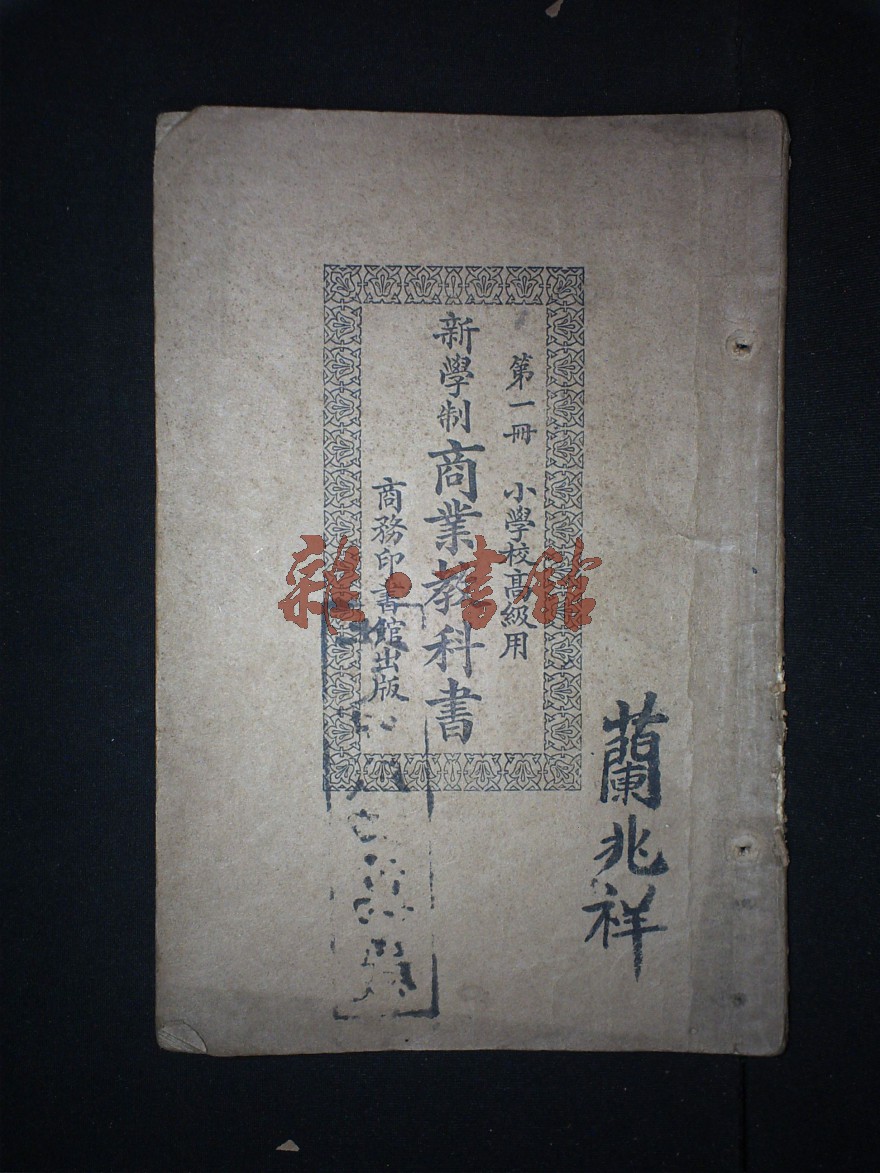 第一冊 小學校高級用
新學制商業教科書
商務印書館出版
蘭兆祥
雜·書館